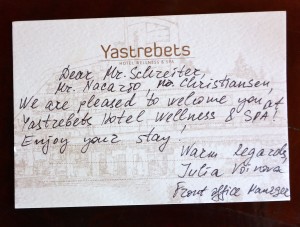 Yastrebets
HOTEL WELLNESS & SPA
Dear Mr. Schreiter,
Mr. Nacarso, Mr. Christiansen,
We are pleased to welcome you at
Yastrebets Hotel Wellness & SPA!
Enjoy your stay!
Warm regards,
Julia Voinova
Front office Manager